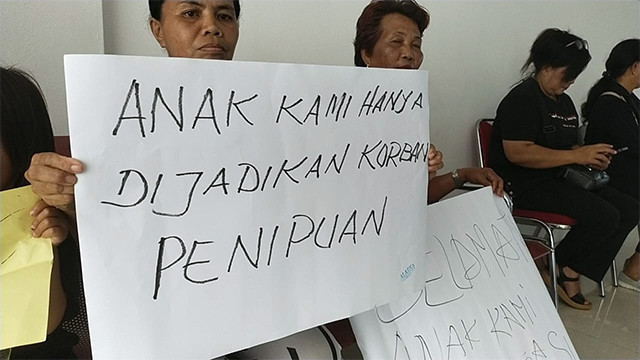 ANAK KAMI HANYA
DIJADIKAN KORBAN
PENIPUAN
ANAK KAMI